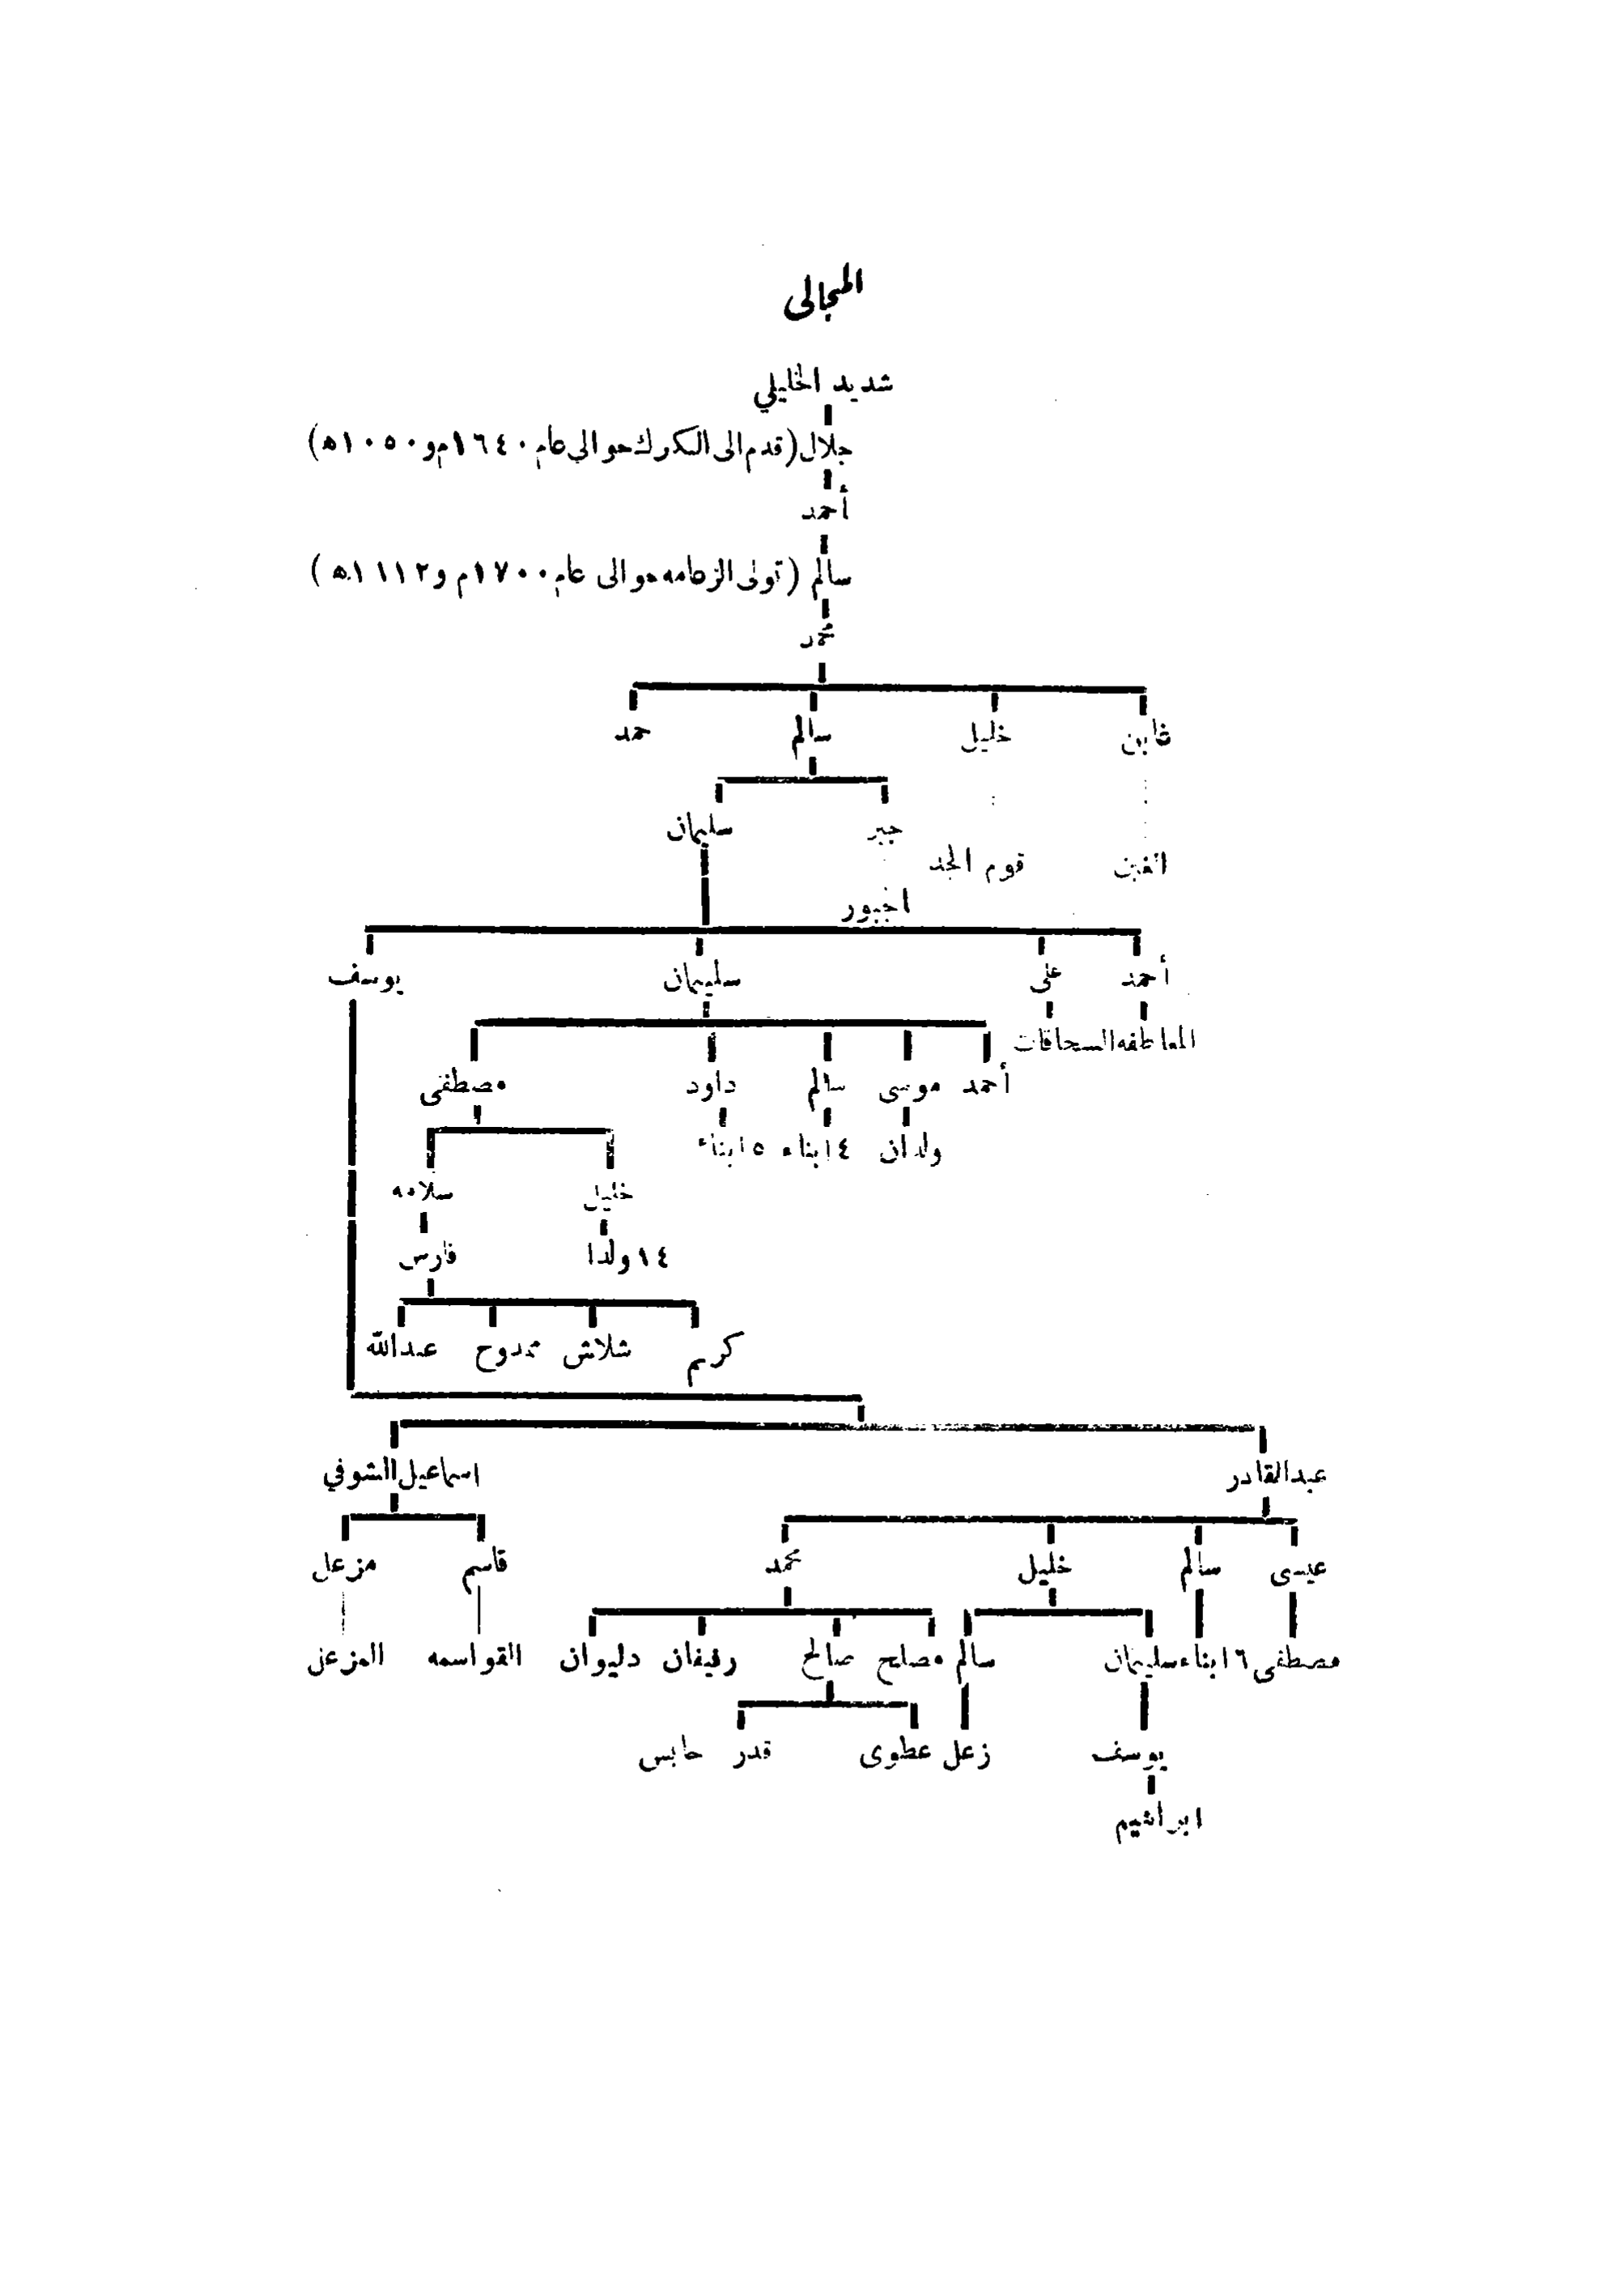 المجالى
شديد الخليلي
جلال (قدم الى الكرك حوالي عام ١٦٤٠م و ١٠٥٠ه)
أحمد
سالم (تولى الزعامه حوالى عام ١٧٠٠م و ١١١٢ه)
محمد
غابن خليل سالم حمد
جبر سليمان
الغبن قوم الجد
اجبور
أحمد على سليمان يوسف
المعاطفه السحاقات
أحمد موسى سالم داود مصطفى
ولدان ٤ ابناء ٥ ابناء
خليل سلامه
١٤ ولدا فارس
كريم شلاش ممدوح عبدالله
عبدالقادر اسماعيل الشوفي
عيسى سالم خليل محمد قاسم مزعل
مصطفى ٦ ابناء سليمان سالم مصلح صالح رفيفان دليوان القواسمه المزعل
يوسف زعل عطوى قدر حابس
ابراهيم